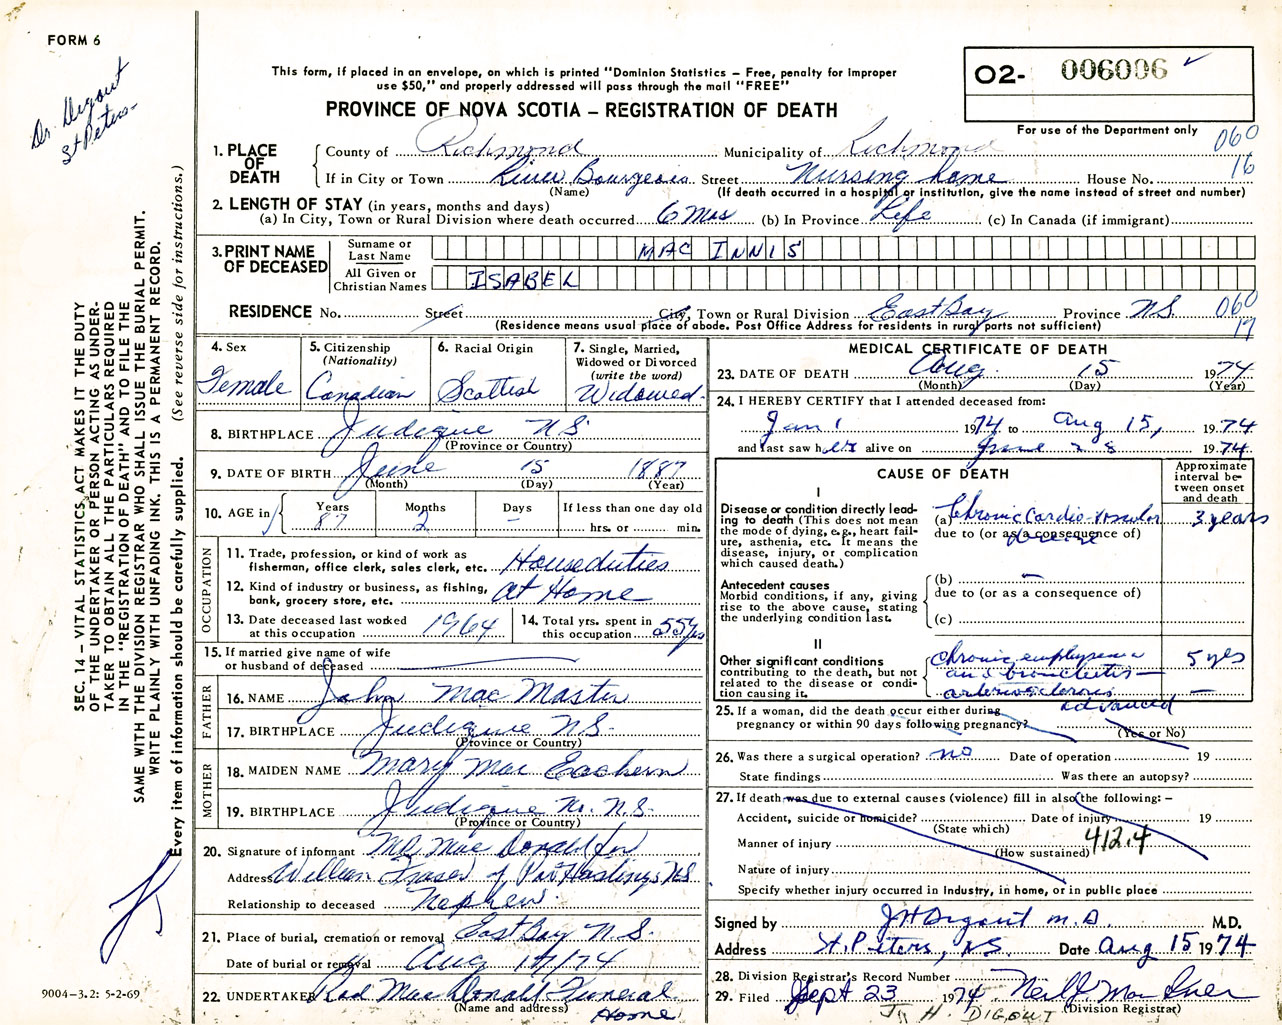 FORM 6
Dr. Digout
St Peters-
This form, if placed in an envelope, on which is printed "Dominion Statistics – Free, penalty for improper
use $50," and properly addressed will pass through the mail "FREE"
PROVINCE OF NOVA SCOTIA – REGISTRATION OF DEATH
O2- 006006 ✓
For use of the Department only
060
16
1. PLACE OF DEATH
County of Richmond Municipality of Richmond
If in City or Town River Bourgeois Street Nursing home House No.
(Name) (If death occurred in a hospital or institution, give the name instead of street and number)
2. LENGTH OF STAY (in years, months and days)
(a) In City, Town or Rural Division where death occurred 6 Mos (b) In Province Life (c) In Canada (if immigrant)
3. PRINT NAME OF DECEASED
Surname or Last Name MAC INNIS
All Given or Christian Names ISABEL
RESIDENCE No. Street City, Town or Rural Division East Bay Province N.S. 060
(Residence means usual place of abode. Post Office Address for residents in rural parts not sufficient) 17
4. Sex
Female
5. Citizenship
(Nationality)
Canadian
6. Racial Origin
Scottish
7. Single, Married,
Widowed or Divorced
(write the word)
Widowed
8. BIRTHPLACE Judique N.S.
(Province or Country)
9. DATE OF BIRTH June 15 1887
(Month) (Day) (Year)
10. AGE in Years Months Days If less than one day old
87 2 – hrs. or min.
OCCUPATION
11. Trade, profession, or kind of work as
fisherman, office clerk, sales clerk, etc. Houseduties
12. Kind of industry or business, as fishing,
bank, grocery store, etc. at Home
13. Date deceased last worked
at this occupation 1964
14. Total yrs. spent in
this occupation 55 yrs
15. If married give name of wife
or husband of deceased
FATHER
16. NAME John Mac Master
17. BIRTHPLACE Judique N.S.
(Province or Country)
MOTHER
18. MAIDEN NAME Mary Mac Eachern
19. BIRTHPLACE Judique N.S.
(Province or Country)
20. Signature of informant Mac Donald for
Address William Fraser of Port Hastings NS
Relationship to deceased Nephew
21. Place of burial, cremation or removal East Bay N.S.
Date of burial or removal Aug 17/74
22. UNDERTAKER Rod MacDonald Funeral
(Name and address) Home
MEDICAL CERTIFICATE OF DEATH
23. DATE OF DEATH Aug. 15 1974
(Month) (Day) (Year)
24. I HEREBY CERTIFY that I attended deceased from:
Jan 1 1974 to Aug 15, 1974
and last saw her alive on June 28 1974
CAUSE OF DEATH
Approximate
interval be-
tween onset
and death
I
Disease or condition directly lead-
ing to death (This does not mean
the mode of dying, e.g., heart fail-
ure, asthenia, etc. It means the
disease, injury, or complication
which caused death.)
(a) Chronic Cardio-vascular 3 years
due to (or as a consequence of)
disease
Antecedent causes
Morbid conditions, if any, giving
rise to the above cause, stating
the underlying condition last.
(b) –
due to (or as a consequence of)
(c)
II
Other significant conditions
contributing to the death, but not
related to the disease or condi-
tion causing it.
chronic emphysema 5 yrs
and bronchitis –
arteriosclerosis –
advanced
25. If a woman, did the death occur either during
pregnancy or within 90 days following pregnancy?
(Yes or No)
26. Was there a surgical operation? no Date of operation 19
State findings Was there an autopsy?
27. If death was due to external causes (violence) fill in also the following: –
Accident, suicide or homicide? Date of injury 19
(State which)
Manner of injury 412.4
(How sustained)
Nature of injury
Specify whether injury occurred in industry, in home, or in public place
Signed by J H Digout M.D. M.D.
Address St. Peters, N.S. Date Aug 15 1974
28. Division Registrar's Record Number
29. Filed Sept 23 1974 Neil J. Mac
(Division Registrar)
H. DIGOUT
SEC. 14 – VITAL STATISTICS ACT MAKES IT THE DUTY
OF THE UNDERTAKER OR PERSON ACTING AS UNDER-
TAKER TO OBTAIN ALL THE PARTICULARS REQUIRED
IN THE "REGISTRATION OF DEATH" AND TO FILE THE
SAME WITH THE DIVISION REGISTRAR WHO SHALL ISSUE THE BURIAL PERMIT.
WRITE PLAINLY WITH UNFADING INK. THIS IS A PERMANENT RECORD.
Every item of information should be carefully supplied. (See reverse side for instructions.)
9004-3.2: 5-2-69